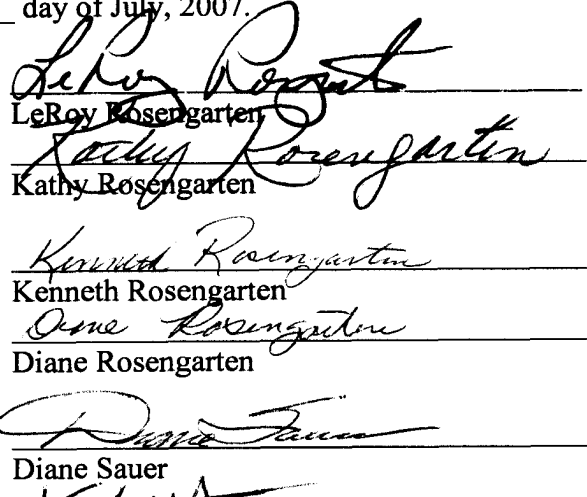 day of July, 2007.
LeRoy Rosengarten
LeRoy Rosengarten
Kathy Rosengarten
Kathy Rosengarten
Kenneth Rosengarten
Kenneth Rosengarten
Diane Rosengarten
Diane Rosengarten
Diane Sauer
Diane Sauer